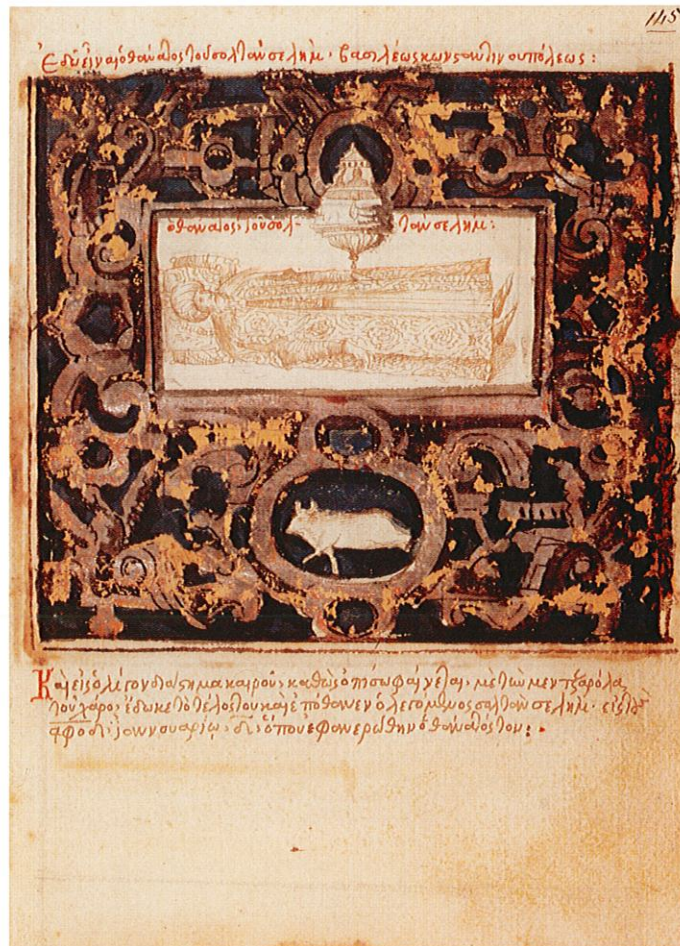 145
Ἐδῶ εἶναι ὁ θάνατος τοῦ σολτὰν σελήμ· βασιλέως κωνσταντινουπόλεως:
ὁ θάνατος τοῦ σολτὰν σελήμ:
Καὶ εἰς ὀλίγον διάστημα καιροῦ, καθὼς ὀπίσω φαίνεται, μὲ τὼ μεντζαρόλα
τοῦ χάρο, ἔδωκε τὸ τέλος του καὶ ἐπόθανεν ὁ λεγόμενος σολτὰν σελήμ· εἰς
αφοδ ἰαννουαρίῳ ὁποῦ ἐφανερώθην ὁ θάνατός του: